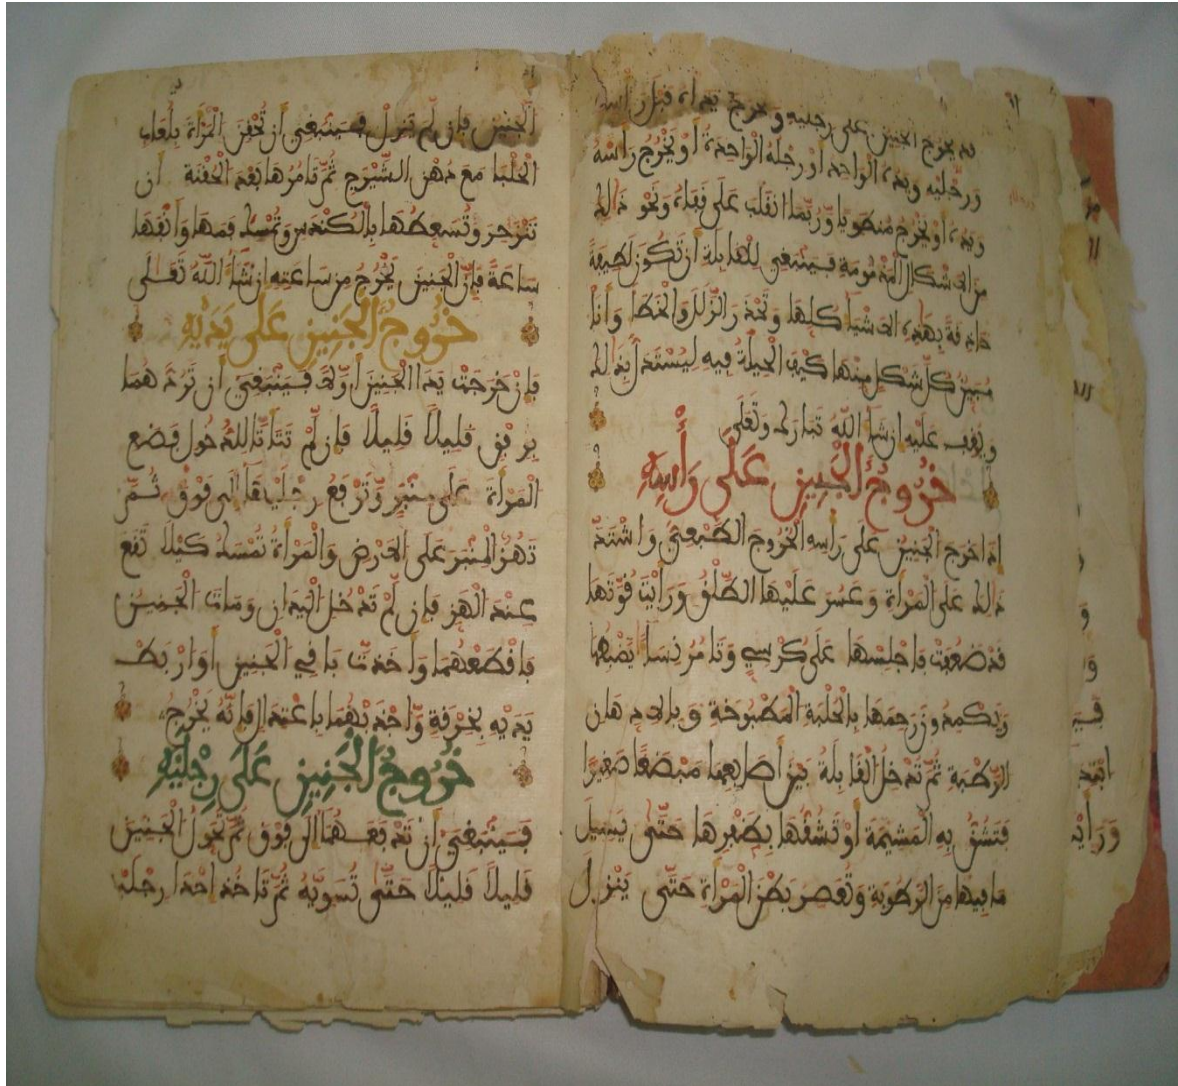 قد يخرج الجنين على رجليه وتخرج يداه قبل راسه
ورجليه ويده الواحدة او رجله الواحدة أو يخرج راسه
ويده أو يخرج منطويا وربما انقلب على قفاه ونحو ذالك
من الاشكال المذمومة فينبغي للقابلة أن تكون لطيفة
حاذقة بهذه الاشيا كلها وتحذر الزلل والخطا وأنا
مبين كل شكل منها كيف الحيلة فيه ليستدل بذالك
ويقف عليه ان شا الله تبارك وتعلى
خروج الجنين على رأسه
اذا خرج الجنين على راسه الخروج الطبعي واشتد
ذالك على المرأة وعسر عليها الطلق ورأيت قوتها
قد ضعفت فاجلسها على كرسي وتامر نسا يضبطها
ويكمدون رحمها بالحلبة المطبوخة وبالادهان
الرطبة ثم تدخل القابلة بين أصابعها مبضعا صغيرا
فتشق به المشيمة أو تشقها بظفرها حتى يسيل
ما فيها من الرطوبة وتعصر بطن المرأة حتى ينزل
الجنين فإن لم ينزل فينبغي أن تحقن المرأة بلعاب
الحلبا مع دهن الشيرج ثم تامرها بعد الحقنة ان
تتزحر وتسعطها بالكندس وتمسك فمها وأنفها
ساعة فإن الجنين يخرج من ساعته ان شا الله تعلى
خروج الجنين على يديه
فإن خرجت يدا الجنين أولا فينبغي أن تردهما
برفق قليلا قليلا فإن لم تتأتا للدخول فضع
المرأة على منبر وترفع رجليها الى فوق ثم
تهز المنبر على الارض والمرأة تمسك كيلا تقع
عند الهز فإن لم تدخل اليدان ومات الجنين
فاقطعهما واجذب باقي الجنين أو اربط
يديه بخرقة واجذبهما باعتدال فإنه يخرج
خروج الجنين على رجليه
فينبغي أن تدفعهما الى فوق ثم تحول الجنين
قليلا قليلا حتى تسويه ثم تاخذ احدا رجليه